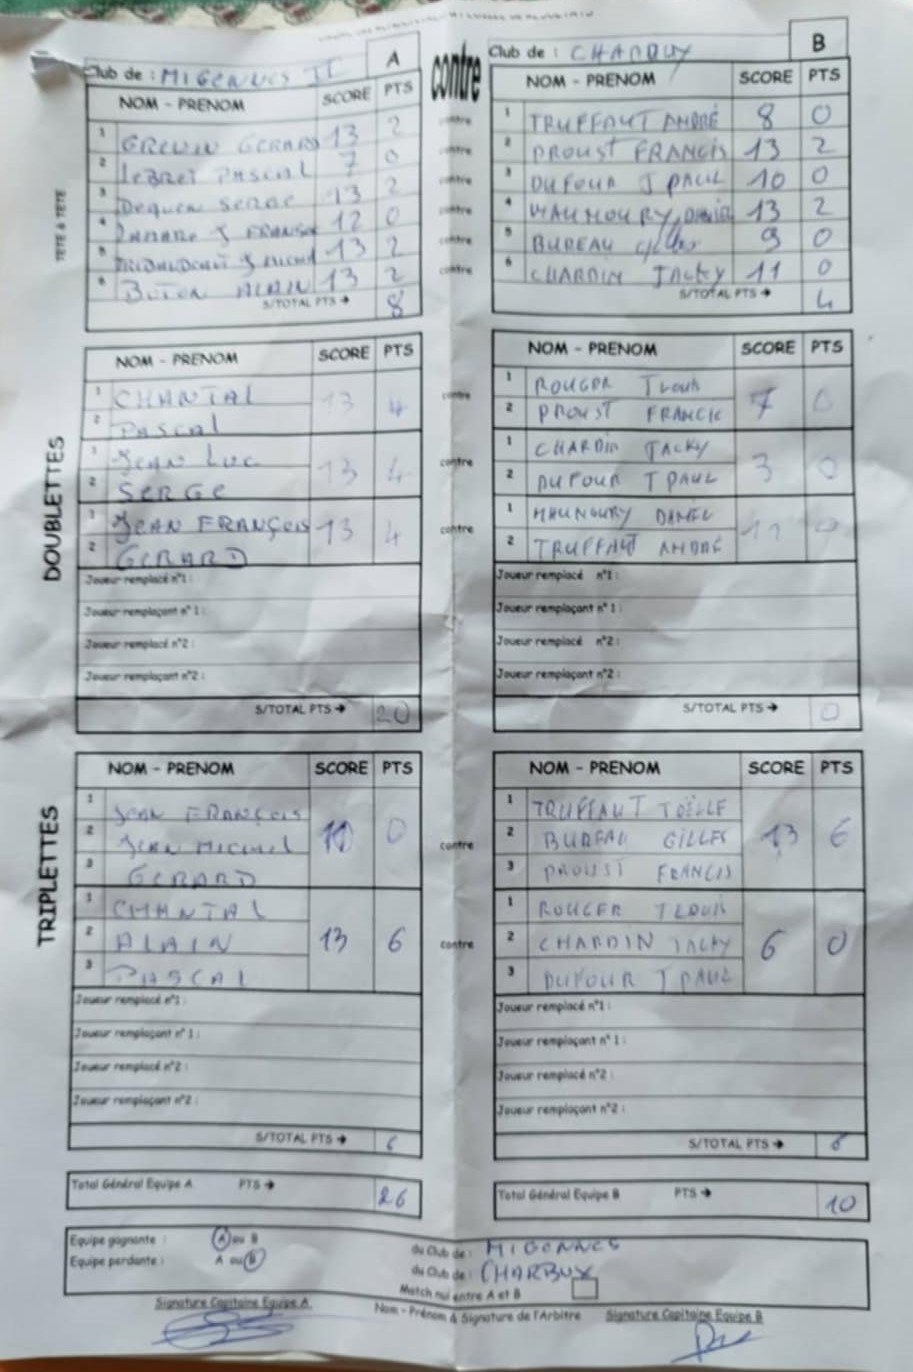 A
Club de : MIGENNES II
contre
B
Club de : CHARBUY
NOM - PRENOM SCORE PTS
NOM - PRENOM SCORE PTS
TETE à TETE
1 GERARD 13 2
contre
1 TRUFFAUT ANDRÉ 8 0
2 LEBRET PASCAL 7 0
contre
2 PROUST FRANCIS 13 2
3 SERGE 13 2
contre
3 DUFOUR J PAUL 10 0
4 J FRANÇOIS 12 0
contre
4 MAUNOURY DANIEL 13 2
5 13 2
contre
5 BUREAU 9 0
6 ALAIN 13 2
contre
6 CHARDIN JACKY 11 0
S/TOTAL PTS → 8
S/TOTAL PTS → 4
DOUBLETTES
NOM - PRENOM SCORE PTS
NOM - PRENOM SCORE PTS
1 CHANTAL
2 PASCAL
13 4
contre
1 ROUGER
2 PROUST FRANCIS
7 0
1 JEAN LUC
2 SERGE
13 4
contre
1 CHARDIN JACKY
2 DUFOUR J PAUL
3 0
1 JEAN FRANÇOIS
2 GERARD
13 4
contre
1 MAUNOURY DANIEL
2 TRUFFAUT ANDRÉ
11 0
Joueur remplacé n°1 :
Joueur remplaçant n° 1 :
Joueur remplacé n°2 :
Joueur remplaçant n°2 :
S/TOTAL PTS → 20
Joueur remplacé n°1 :
Joueur remplaçant n° 1 :
Joueur remplacé n°2 :
Joueur remplaçant n°2 :
S/TOTAL PTS → 0
TRIPLETTES
NOM - PRENOM SCORE PTS
NOM - PRENOM SCORE PTS
1 JEAN FRANÇOIS
2 JEAN MICHEL
3 GERARD
0
contre
1 TRUFFAUT JOËLLE
2 BUREAU GILLES
3 PROUST FRANCIS
13 6
1 CHANTAL
2 ALAIN
3 PASCAL
13 6
contre
1 ROUGER J LOUIS
2 CHARDIN JACKY
3 DUFOUR J PAUL
6 0
Joueur remplacé n°1 :
Joueur remplaçant n° 1 :
Joueur remplacé n°2 :
Joueur remplaçant n°2 :
S/TOTAL PTS → 6
Joueur remplacé n°1 :
Joueur remplaçant n° 1 :
Joueur remplacé n°2 :
Joueur remplaçant n°2 :
S/TOTAL PTS →
Total Général Equipe A PTS → 26
Total Général Equipe B PTS → 10
Equipe gagnante : A ou B
du Club de : MIGENNES
Equipe perdante : A ou B
du Club de : CHARBUY
Match nul entre A et B
Signature Capitaine Equipe A.
Nom - Prénom & Signature de l'Arbitre
Signature Capitaine Equipe B